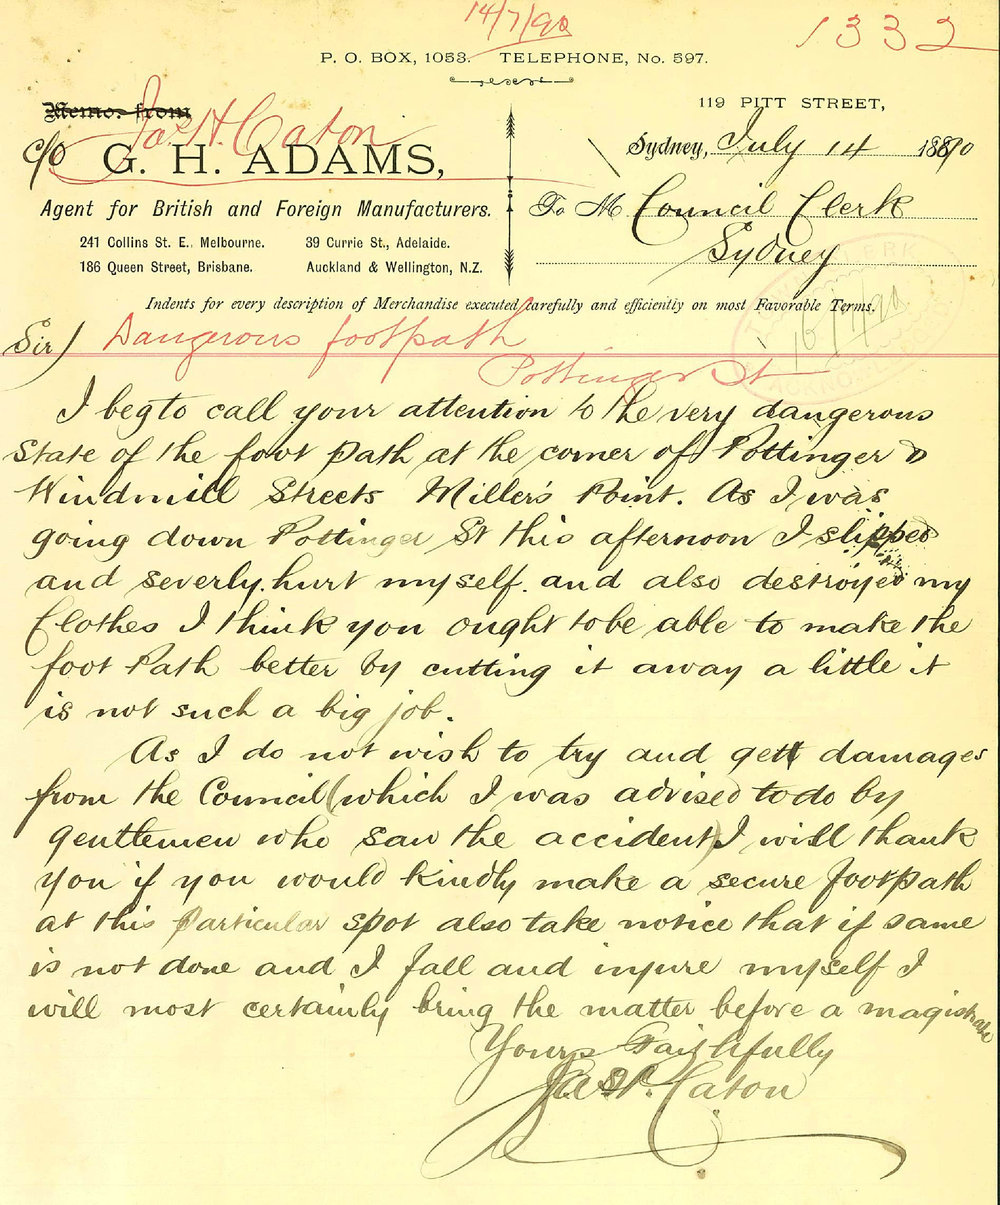 14/7/90
1332
P. O. BOX, 1053. TELEPHONE, No. 597.
119 PITT STREET,
Memo. from
Jas H Caton
Sydney, July 14 1890
c/o G. H. ADAMS,
Agent for British and Foreign Manufacturers.
To M Council Clerk
Sydney
241 Collins St. E., Melbourne. 39 Currie St., Adelaide.
186 Queen Street, Brisbane. Auckland & Wellington, N.Z.
CLERK
16/7/90
ACKNOWLEDGED
Indents for every description of Merchandise executed carefully and efficiently on most Favorable Terms.
Sir) Dangerous footpath
Pottinger St
I beg to call your attention to the very dangerous
State of the foot path at the corner of Pottinger &
Windmill Streets Miller's Point. As I was
going down Pottinger St this afternoon I slipped
and severly hurt myself. and also destroyed my
Clothes I think you ought to be able to make the
foot Path better by cutting it away a little it
is not such a big job.
As I do not wish to try and gett damages
from the Council (which I was advised to do by
gentlemen who saw the accident) I will thank
you if you would kindly make a secure footpath
at this particular spot also take notice that if same
is not done and I fall and injure myself I
will most certainly bring the matter before a magistrate
Yours Faithfully
Jas H. Caton